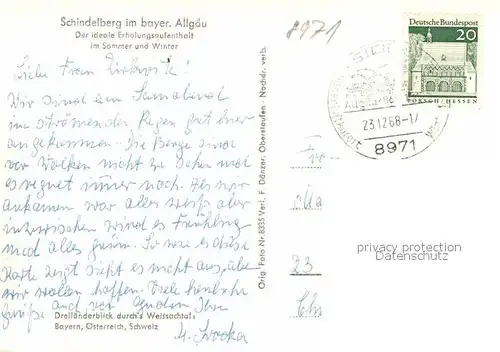 Schindelberg im bayer. Allgäu
Der ideale Erholungsaufenthalt
im Sommer und Winter
8971
Deutsche Bundespost
20
LORSCH/HESSEN
23.12.68-17
8971
Liebe Frau
Wir sind am Sonnabend
im strömenden Regen gut hier
angekommen. Die Berge sind
vor Wolken nicht zu sehen und
es regnet immer noch. Als wir
ankamen war alles weiß aber
inzwischen wird es Frühling
und alles grün. So wie es diese
Karte zeigt sieht es nicht aus, aber
wir wollen hoffen. Viele herzliche
Grüße und von Ihre
Dreiländerblick durch's Weissachtal
Bayern, Österreich, Schweiz
Orig. Foto Nr. 8335 Verl. F. Dänzer, Oberstaufen - Nachdr. verb.
Fr
23
privacy protection
Datenschutz